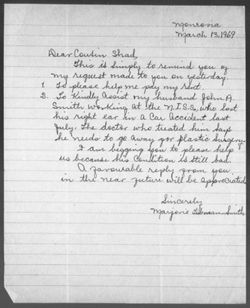 Monrovia
March 13, 1969
Dear Cousin Shad,
This is simply to remind you of
my request made to you on yesterday.
1. To please help me pay my rent.
2. To Kindly assist my husband John A.
Smith working at the N.I.S.S. who lost
his right ear in a Car Accident last
July. The doctor who treated him says
he needs to go away for plastic surgery.
I am begging you to please help
us because his condition is still bad.
A favourable reply from you
in the near future will be appreciated.
Sincerely
Marjorie Smith